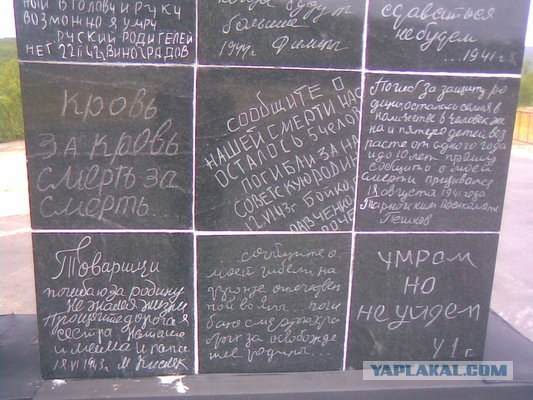 ный в голову и руку
возможно я умру
руский родителей
нет 22 г ч2 виноградов
когда будут
больше
1944 г. Филипп
сдаваться
не будем
...1941 г.
кровь
за кровь
смерть за
смерть.
сообщите о
нашей смерти нас
осталось 5 чело
погибли за на
советскую родин
12.VII 43 г. Бойко
авченко
Погиб за защиту ро
дину, осталась семья в
количестве 6 человек же
на и пятеро детей воз
расте от одного года
и до 10 лет прошу
сообщить о моей
смерти призывался
18 августа 1941 года
Пешков
Товарищи
погибаю за родину
не жалея жизни
Прощайте дорогая
сестра Наташа
и мама и папа
18 VI 1943 г. М Кисляк
...сообщите о
моей гибели на
фронте отечествен
ной войны... поги
баю смертью хра
брых за освобожде
ние родины...
умрем
но
не уйдем
41 г.
YAPLAKAL.COM